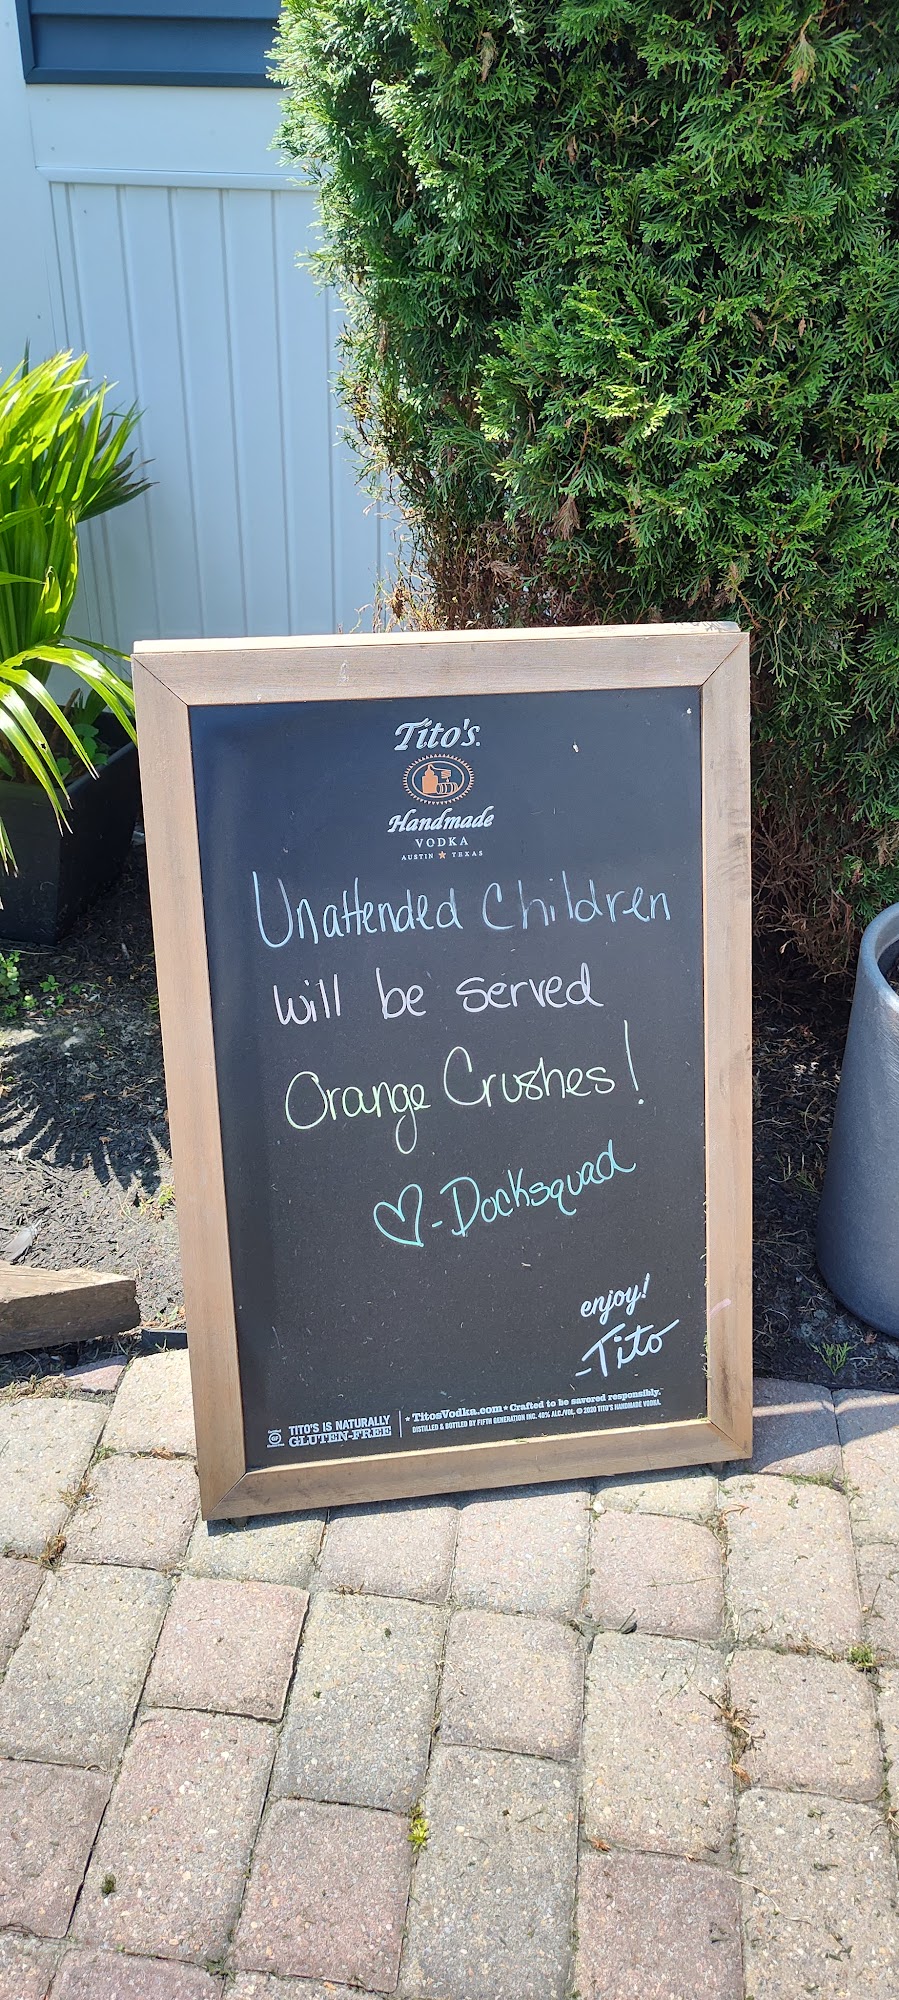 Tito's.
Handmade
VODKA
AUSTIN ★ TEXAS
Unattended Children
will be served
Orange Crushes!
♡-Docksquad
enjoy!
-Tito
TITO'S IS NATURALLY
GLUTEN-FREE
* TitosVodka.com * Crafted to be savored responsibly.
DISTILLED & BOTTLED BY FIFTH GENERATION INC. 40% ALC./VOL. © 2020 TITO'S HANDMADE VODKA.